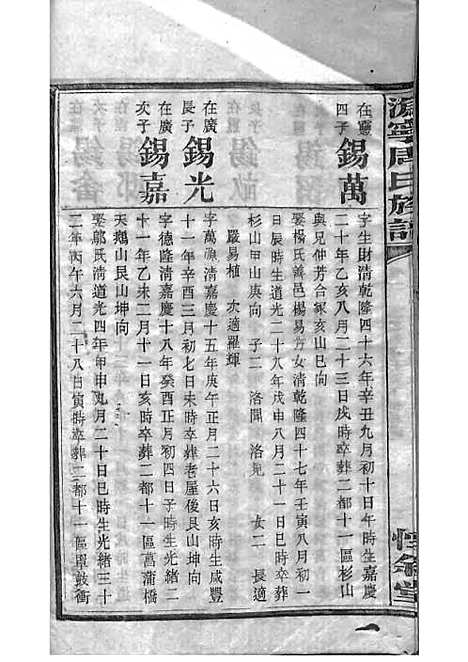 在靈
四子
錫萬
字生財清乾隆四十六年辛丑九月初十日午時生嘉慶
二十年乙亥八月二十三日戌時卒葬二都十一區杉山
與兄仲芳合冢亥山巳向
娶楊氏善邑楊易芳女清乾隆四十七年壬寅八月初一
日辰時生道光二十八年戊申八月二十一日巳時卒葬
杉山甲山庚向 子二 洛開 洛見 女二 長適
嚴易植 次適羅輝
在廣
長子
錫光
字萬源清嘉慶十五年庚午正月二十六日亥時生咸豐
十一年辛酉三月初七日未時卒葬老屋後艮山坤向
在廣
次子
錫嘉
字德隆清嘉慶十八年癸酉正月初四日子時生光緒二
十一年乙未二月十一日亥時卒葬二都十一區萬蒲橋
天鵝山艮山坤向
娶鄔氏清道光四年甲申九月二十日巳時生光緒三十
二年丙午六月二十八日寅時卒葬二都十一區單鼓衝
寧周氏族譜
堂
一